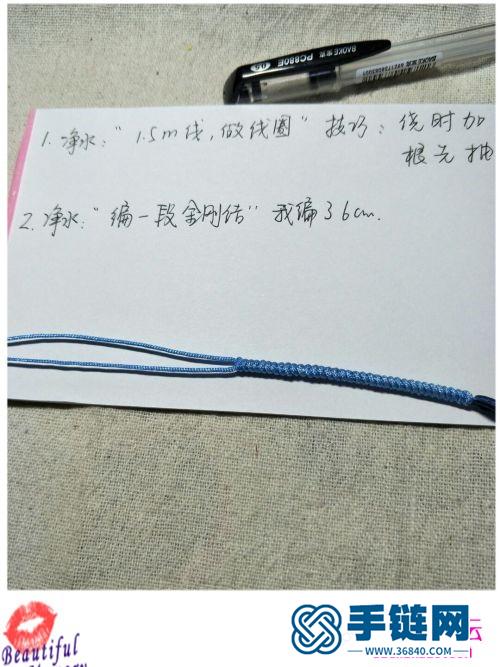 BAOKE 宝克
PC880E
0.5
1. 净水："1.5m线,做线圈" 技巧：绕时加
根光抽
2. 净水："编一段金刚结" 我编36cm.
Beautiful
手链网
www.36840.com